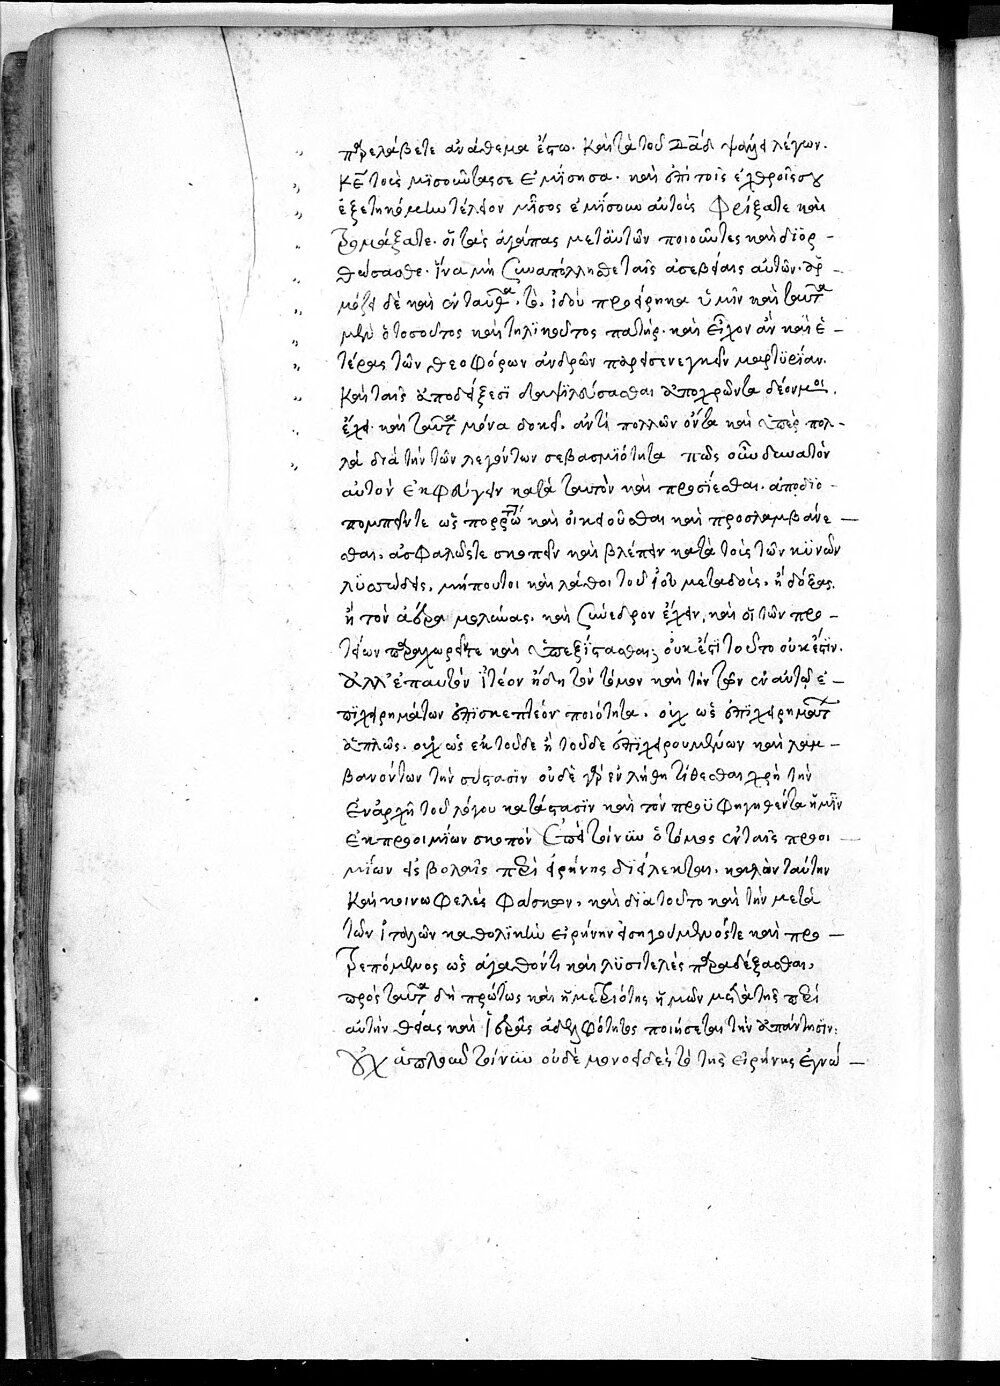 παρελάβετε ἀνάθεμα ἔστω. Καὶ τὰ τοῦ Δ̅α̅δ̅ ψάλλει λέγων.
κ̅ε̅ τοὺς μισοῦντας σε ἐμίσησα. καὶ ἐπὶ τοῖς ἐχθροῖς σου
ἐξετηκόμην τέλειον μῖσος ἐμίσουν αὐτούς φρίξατε καὶ
τρομάξατε. οἱ τὰς ἀγάπας μετ' αὐτῶν ποιοῦντες καὶ διορ –
θώσασθε. ἵνα μὴ συναπόλλησθε ταῖς ἀσεβείαις αὐτῶν.
δὲ καὶ ἐνταῦθα. τὸ, ἰδοὺ προείρηκα ὑμῖν καὶ ταῦτα
μὲν ὁ τοσοῦτος καὶ τηλικοῦτος πατήρ. καὶ εἶχον ἂν καὶ ἑ –
τέρας τῶν θεοφόρων ἀνδρῶν παρεισενεγκεῖν μαρτυρίαν.
καὶ ταῖς ἀποδείξεσι ἀποχρῶντα
ἔχει. καὶ ταῦτα μόνα δοκεῖ. ἀντὶ πολλῶν ὄντα καὶ ὑπὲρ πολ –
λὰ διὰ τὴν τῶν λεγόντων σεβασμιότητα πῶς οὖν δυνατὸν
αὐτὸν ἐκφεύγειν κατὰ ταυτὸν καὶ προσίεσθαι. ἀποδιο –
πομπεῖν τε ὡς πορρωτ καὶ οἰκειοῦσθαι καὶ προσλαμβάνε –
σθαι. ἀσφαλῶς τε σκοπεῖν καὶ βλέπειν κατὰ τοὺς τῶν κυνῶν
λυσσώδεις. μήπου τοι καὶ λάθοι τοῦ ἰοῦ μεταδούς. ἢ δόξας.
ἢ τὸν ἀέρα μολύνας. καὶ σύνεδρον ἔχειν. καὶ οἱ τῶν πρω –
τείων παραχωρεῖν τε καὶ ὑπεξίστασθαι; οὐκ ἔστι τοῦτο οὐκ ἔστιν.
ἀλλ' ἐπ' αὐτὸν ἰτέον ἤδη τὸν τόμον καὶ τὴν τῶν ἐν αὐτῷ ἐ –
πιχειρημάτων ἐπισκεπτέον ποιότητα. οὐχ ὡς ἐπιχειρημάτ
ἁπλῶς. οὐχ ὡς ἐκ τοῦδε ἢ τοῦδε ἐπιχειρουμένων καὶ λαμ –
βανόντων τὴν σύστασιν οὐδὲ γὰρ ἐν λήθῃ τίθεσθαι χρὴ τὴν
ἐν ἀρχῇ τοῦ λόγου κατάστασιν καὶ τὸν προϋφηγηθέντα ἡμῖν
ἐκ προοιμίων σκοπόν ἐπεὶ τοίνυν ὁ τόμος ἐν ταῖς προοι –
μίων εἰσβολαῖς περὶ εἰρήνης διείλεκται. καλὰν ταύτην
καὶ κοινωφελὲς φάσκων. καὶ διὰ τοῦτο καὶ τὴν μετὰ
τῶν ἰταλῶν καθολικὴν εἰρήνην εἰσηγούμενος ὥστε καὶ προ –
τρεπόμενος ὡς ἀγαθόν τι καὶ λυσιτελὲς παραδέξασθαι.
πρὸς ταῦτα δὴ πρώτως καὶ ἡ μετριότης ἡμῶν μετὰ τῆς περὶ
αὐτὴν θείας καὶ ἱερᾶς ἀδελφότητος ποιήσεται τὴν ἀπάντησιν:
Οὐχ ἁπλοῦν τοίνυν οὐδὲ μονοειδὲς τὸ τῆς εἰρήνης ἔγνω –